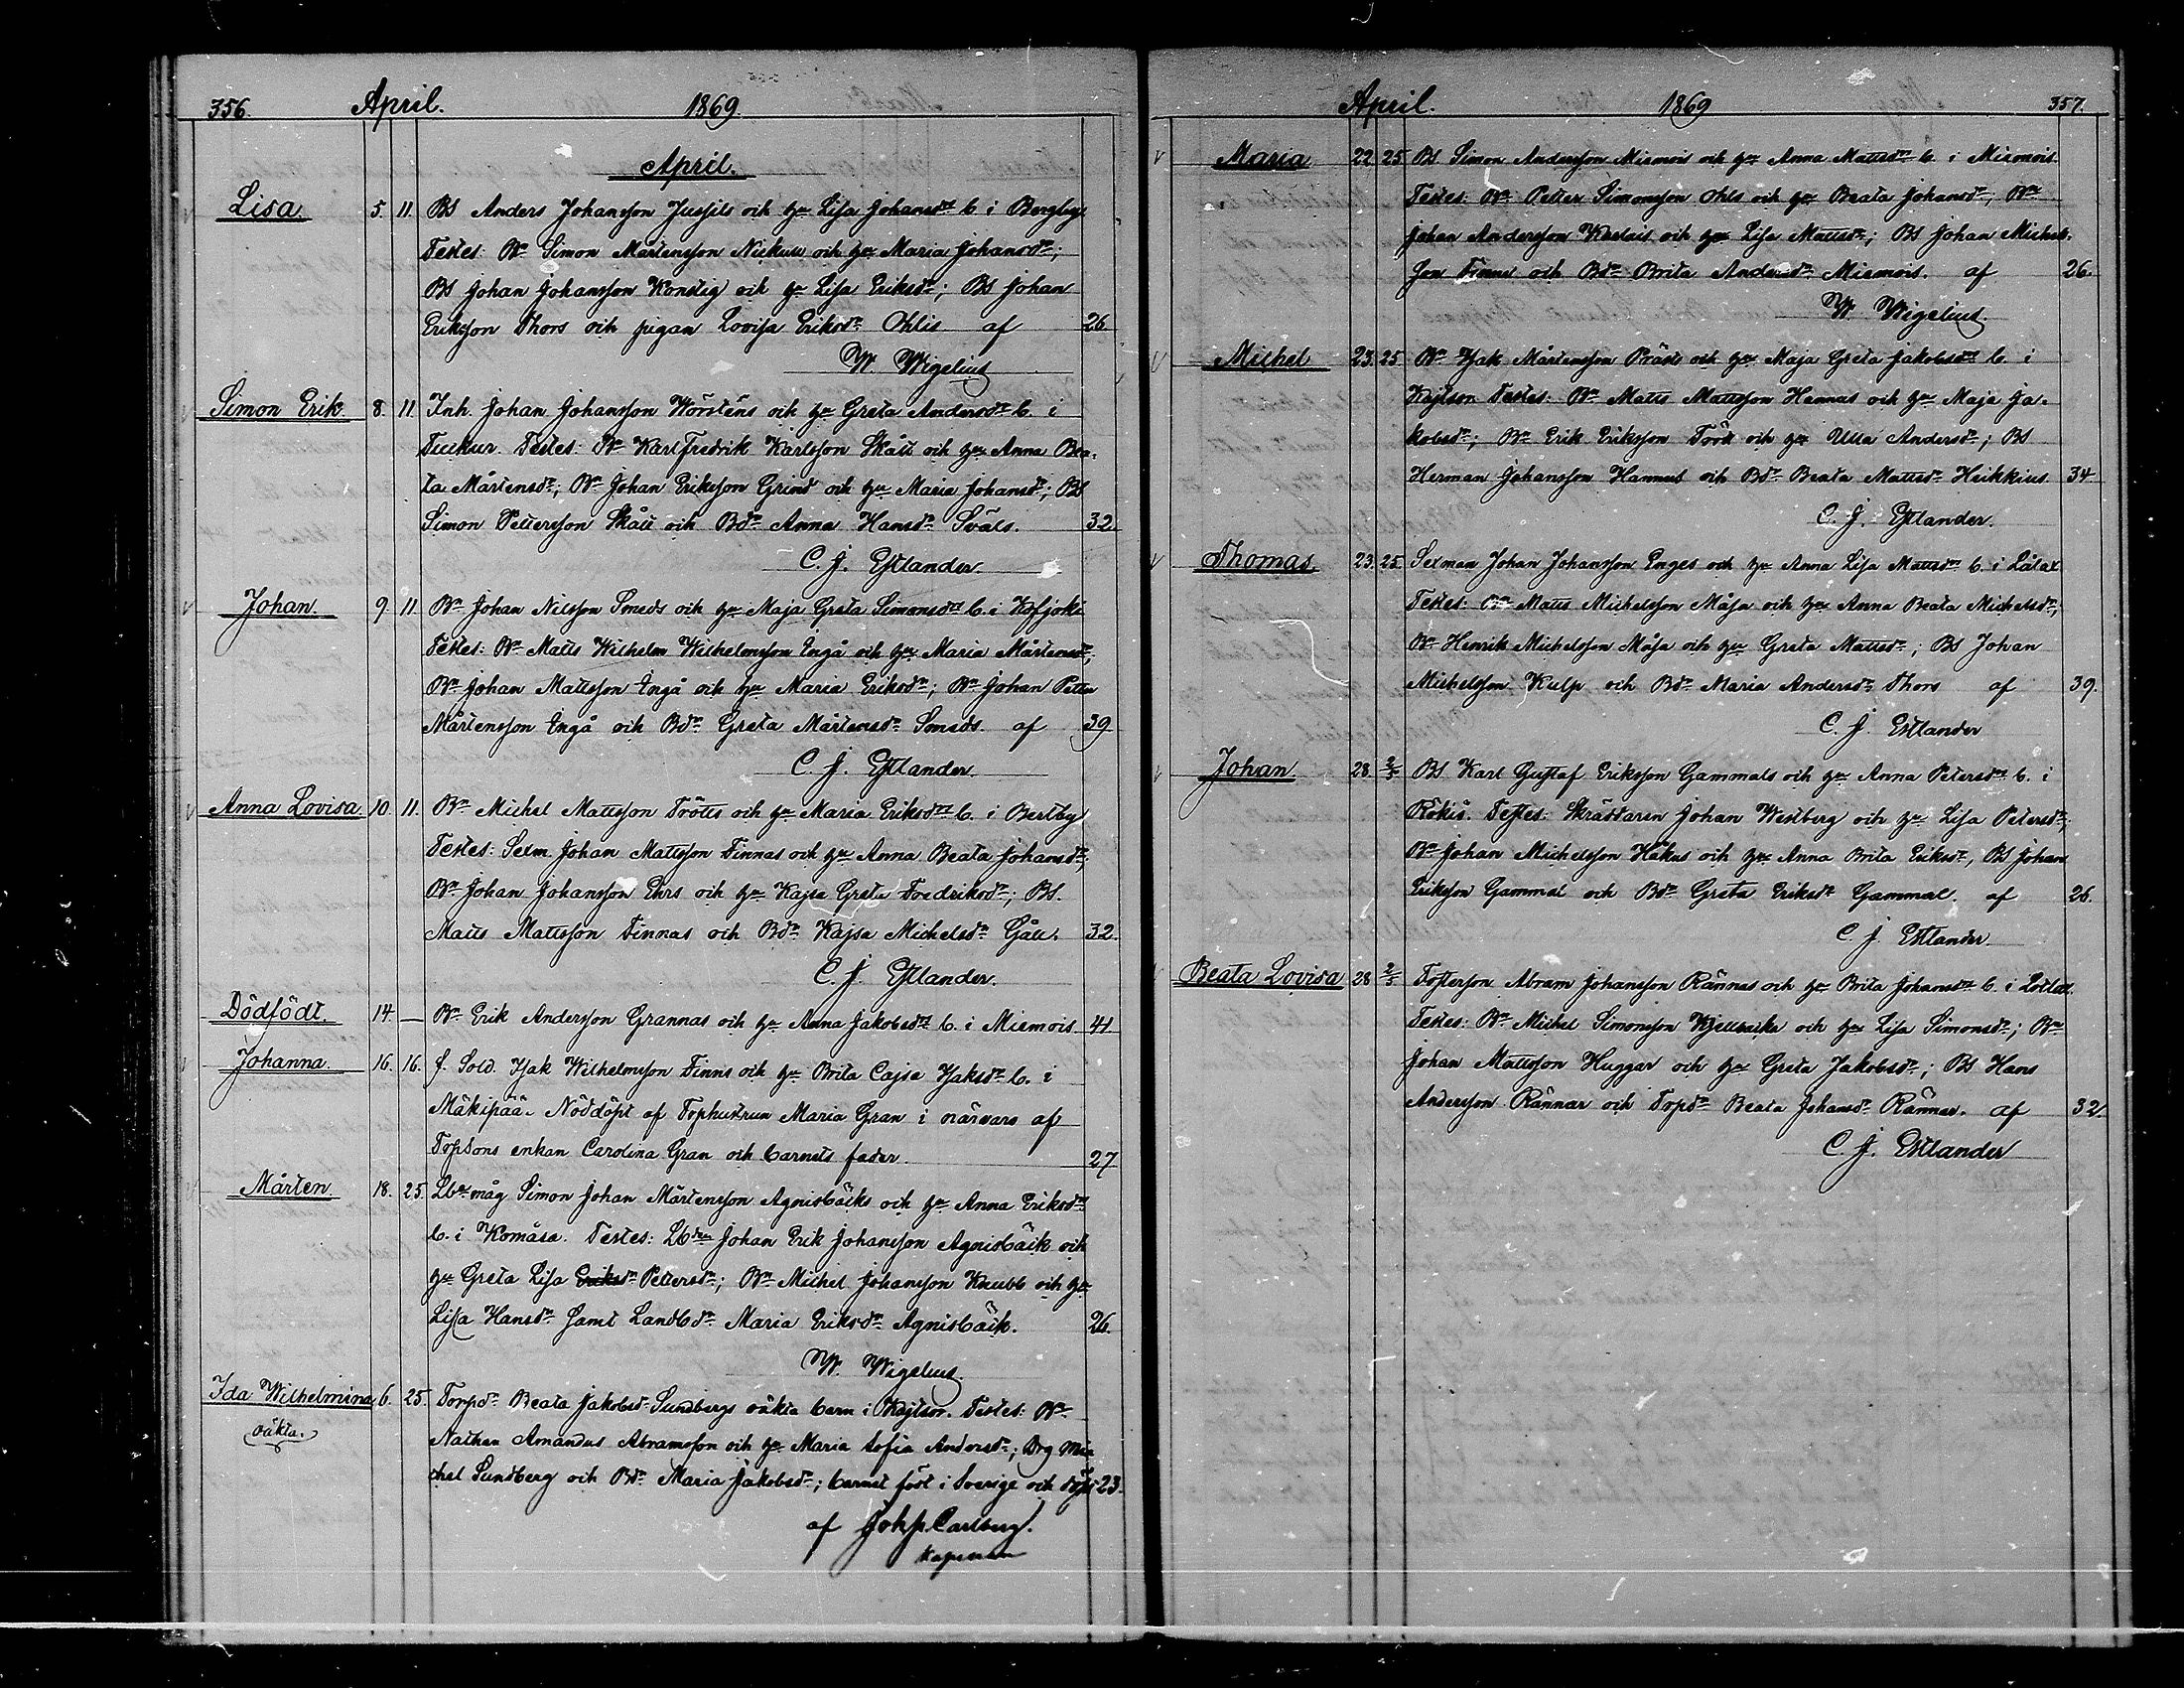 356. April. 1869.
April.
Lisa. 5. 11. BS Anders Johansson Jussils och hu Lisa Johansdr b. i Bergby
Testes: Bn Simon Mårtensson och hu Maria Johansdr;
BS Johan Johansson Konstig och hu Lisa Eriksdr; BS Johan
Eriksson Thors och pigan Lovisa Eriksdr Ohlis af 26
W. Wigelius
Simon Erik. 8. 11. Inh. Johan Johansson och hu Greta Andersdr b. i
Tuckur. Testes: Bn Karl Fredrik Karlsson Skått och hu Anna Bea-
ta Mårtensdr; Bn Johan Eriksson Grind och hu Maria Johansdr; BS
Simon Pettersson Skått och Bdr Anna Hansdr Sväls. 32.
C. J. Estlander.
Johan. 9. 11. Bn Johan Nilsson Smeds och hu Maja Greta Simonsdr b. i Kosjoki
Testes: Bn Matts Wilhelm Wilhelmsson Ingå och hu Maria Mårtensdr;
Bn Johan Mattsson Ingå och hu Maria Eriksdr; Bn Johan Petter
Mårtensson Ingå och Bdr Greta Mårtensdr Smeds. af 39
C. J. Estlander.
Anna Lovisa. 10. 11. Bn Michel Mattsson Trötts och hu Maria Eriksdr b. i Bertby
Testes: Sexm. Johan Mattsson Finnas och hu Anna Beata Johansdr;
Bn Johan Johansson Ehrs och hu Kajsa Greta Fredriksdr; BS.
Matts Mattsson Finnas och Bdr Kajsa Michelsdr Gåll. 32.
C. J. Estlander.
Dödfödt. 14. — Bn Erik Andersson Grannas och hu Anna Jakobsdr b. i Miemois 41
Johanna. 16. 16. f. Sold. Isak Wilhelmsson Finne och hu Brita Cajsa Isaksdr b. i
Mäkipää. Nöddöpt af Torphustrun Maria Gran i närvaro af
enkan Carolina Gran och barnets fader. 27
Mårten. 18. 25. måg Simon Johan Mårtensson Agnisbäcks och hu Anna Eriksdr
b. i Komåsa. Testes: Johan Erik Johansson Agnisbäck och
hu Greta Lisa Eriksdr Pettersdr; Bn Michel Johansson Knubb och hu
Lisa Hansdr samt Landbdr Maria Eriksdr Agnisbäck. 26.
W. Wigelius.
Ida Wilhelmina 6. 25. Torpdr Beata Jakobsdr Sundbergs oäkta barn i Kajtsor. Testes: Bn
oäkta.
Nathan Amandus Abramsson och hu Maria Sofia Andersdr; Drg Mi-
chel Sundberg och Bdr Maria Jakobsdr; barnet födt i Sverige och döpt 23.
af Joh. Carlberg.
April. 1869 357.
Maria 22 25 BS Simon Andersson Miemois och hu Anna Mattsdr b. i Miemois
Testes: Bn Petter Simonsson Ohls och hu Beata Johansdr; Bn
Johan Andersson och hu Lisa Mattsdr; BS Johan Michels-
son Finne och Bdr Brita Andersdr Miemois. af 26.
W. Wigelius.
Michel 23. 25 Bn Isak Mårtensson Präst och hu Maja Greta Jakobsdr b. i
Kajtsor Testes: Bn Matts Mattsson Hannus och hu Maja Ja-
kobsdr; Bn Erik Eriksson Töök och hu Ulla Andersdr; BS
Herman Johansson Hannus och Bdr Beata Mattsdr Heikkius 34
C. J. Estlander.
Thomas. 23. 25. Sexman Johan Johansson Enges och hu Anna Lisa Mattsdr b. i Lålax
Testes: Bn Matts Michelsson Måsa och hu Anna Beata Michelsdr;
Bn Henrik Michelsson Måsa och hu Greta Mattsdr; BS Johan
Michelsson Kulp och Bdr Maria Andersdr Thors af 39.
C. J. Estlander
Johan 28. 2/5 BS Karl Gustaf Eriksson Gammals och hu Anna Petersdr b. i
Rökiö. Testes: Skräddaren Johan Westberg och hu Lisa Petersdr;
Bn Johan Michelsson Håkus och hu Anna Brita Eriksdr, BS Johan
Eriksson Gammal och Bdr Greta Eriksdr Gammal. af 26.
C. J. Estlander
Beata Lovisa 28 2/5 Abram Johansson Rännas och hu Brita Johansdr b. i Lotlax.
Testes: Bn Michel Simonsson och hu Lisa Simonsdr; Bn
Johan Mattsson Huggar och hu Greta Jakobsdr; BS Hans
Andersson Rännar och Torpdr Beata Johansdr Rännar. af 32.
C. J. Estlander